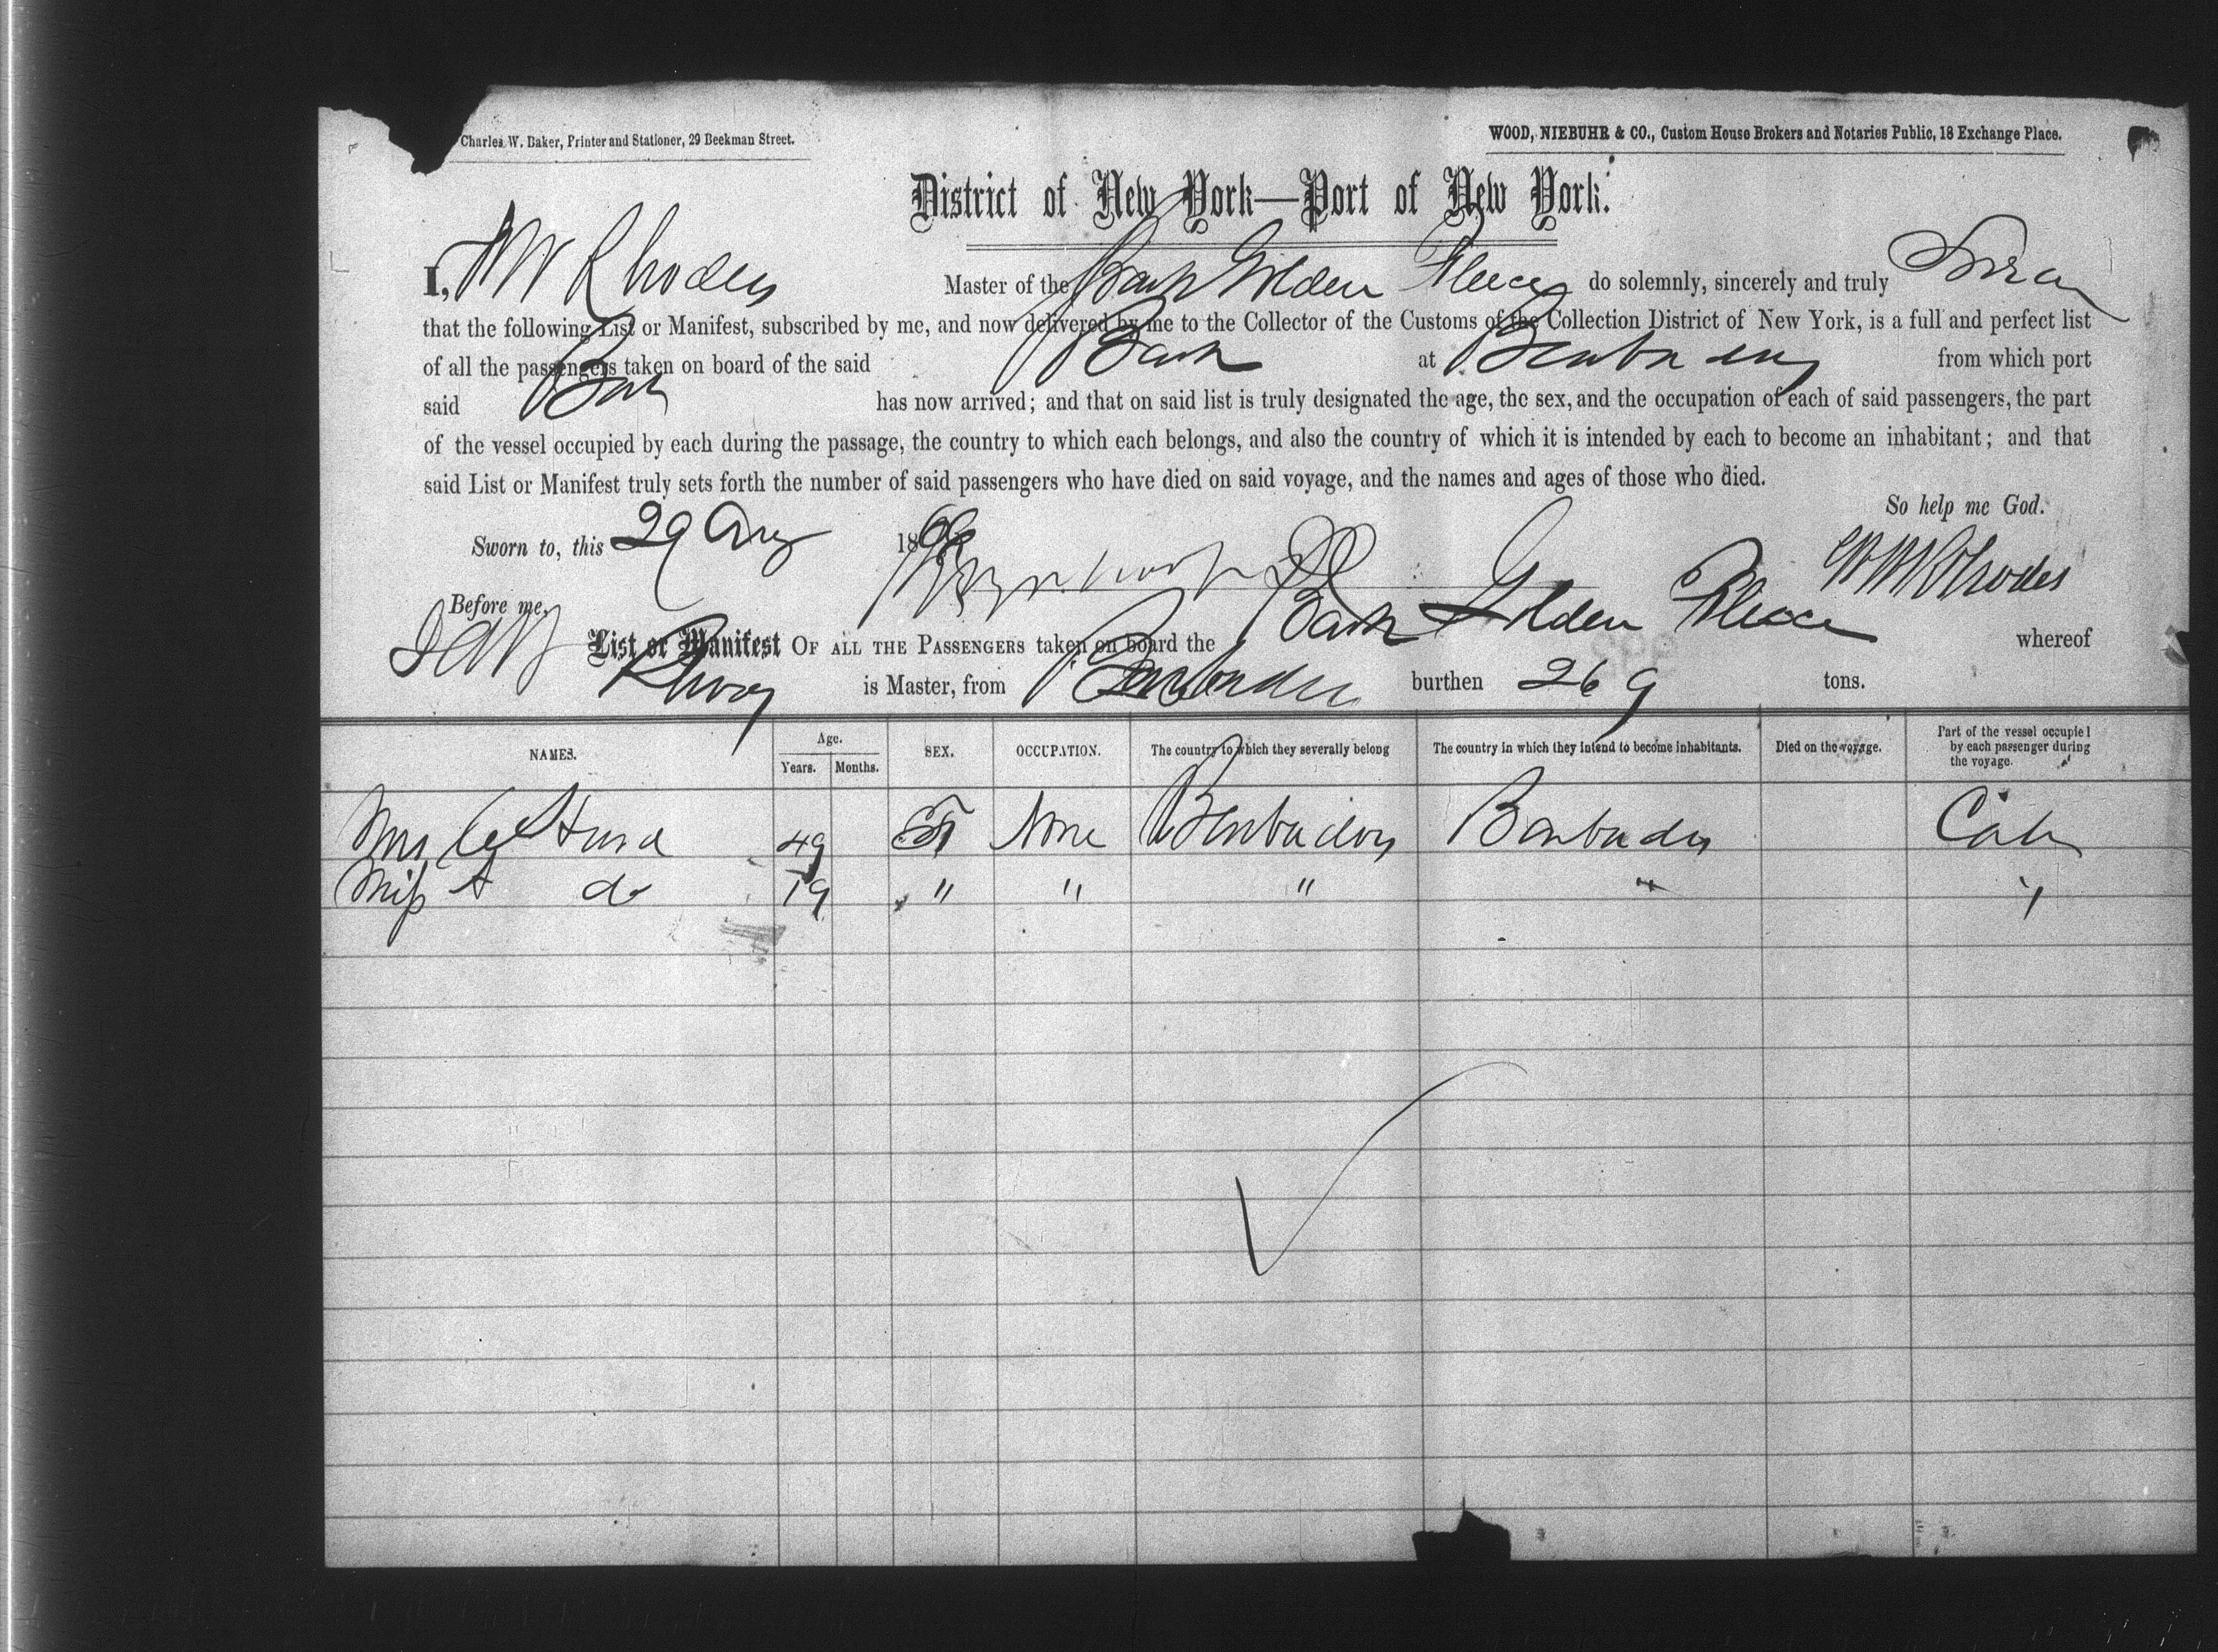 Charles W. Baker, Printer and Stationer, 29 Beekman Street.
WOOD, NIEBUHR & CO., Custom House Brokers and Notaries Public, 18 Exchange Place.
District of New York—Port of New York.
I, W Rhodes Master of the Bark Golden Fleece do solemnly, sincerely and truly Swear
that the following List or Manifest, subscribed by me, and now delivered by me to the Collector of the Customs of the Collection District of New York, is a full and perfect list
of all the passengers taken on board of the said Bark at Barbadoes from which port
said Bark has now arrived; and that on said list is truly designated the age, the sex, and the occupation of each of said passengers, the part
of the vessel occupied by each during the passage, the country to which each belongs, and also the country of which it is intended by each to become an inhabitant; and that
said List or Manifest truly sets forth the number of said passengers who have died on said voyage, and the names and ages of those who died.
So help me God.
Sworn to, this 29 Aug 1869
Rhodes
Before me,
List or Manifest OF ALL THE PASSENGERS taken on board the Bark Golden Fleece whereof
is Master, from Barbadoes burthen 269 tons.
NAMES. Age. Years. Months. SEX. OCCUPATION. The country to which they severally belong The country in which they intend to become inhabitants. Died on the voyage. Part of the vessel occupied by each passenger during the voyage.
Mrs 49 F None Barbadoes Barbadoes Cab
Miss A do 19 " " " " "